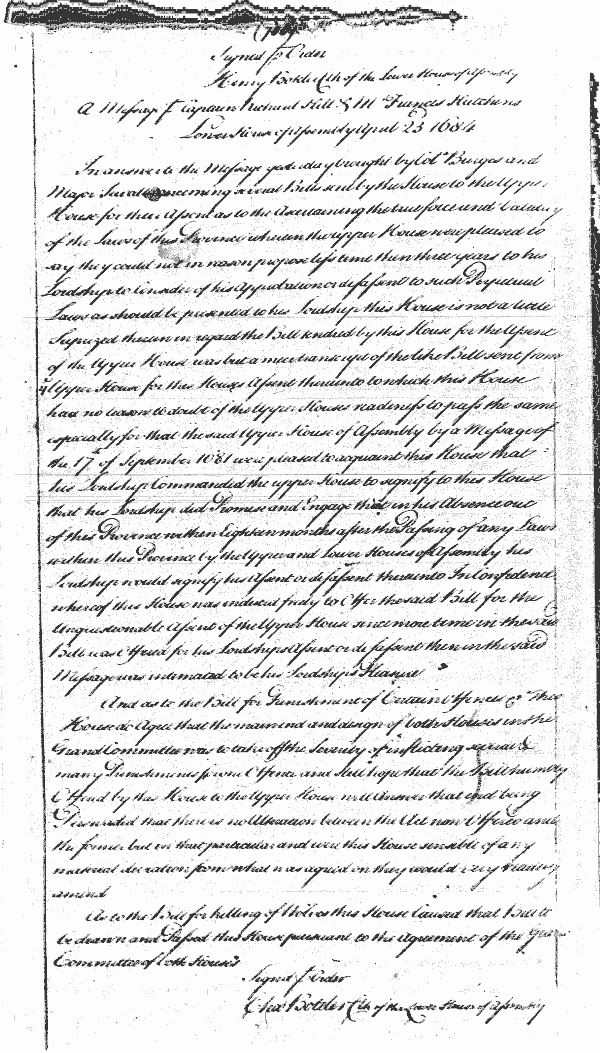 Signed p Order
Henry Bolder Clk of the Lower House of Assembly
A Message p Captain Richard Hill & Mr Francis Hutchins
Lower House of Assembly April 23 1684
In answer to the Message yesterday brought by Col Burges and
Major concerning several Bills sent by this House to the Upper
House for their Assent as to the Ascertaining the true force and Validity
of the Laws of this Province wherein the upper House were pleased to
say they could not in reason propose less time then three years to his
Lordship to Consider of his Approbation or disassent to such Perpetual
Laws as should be presented to his Lordship this House is not a little
Surprized therein in regard the Bill tendred by this House for the Assent
of the Upper House was but a meer transcript of the like Bill sent from
ye Upper House for this Houses Assent thereunto to which this House
had no reason to doubt of the Upper Houses readiness to pass the same
especially for that the said Upper House of Assembly by a Message of
the 17th of September 1681 were pleased to acquaint this House that
his Lordship Commanded the upper House to signify to this House
that his Lordship did Promise and Engage that in his Absence out
of this Province within Eighteen months after the Passing of any Laws
within this Province by the Upper and Lower Houses of Assembly his
Lordship would signify his Assent or disassent thereunto In Confidence
whereof this House was induced freely to Offer the said Bill for the
Unquestionable Assent of the Upper House since more time in the said
Bill was Offered for his Lordships Assent or disassent then in the said
Message was intimated to be his Lordships Pleasure
And as to the Bill for Punishment of Certain Offences &c This
House do Agree that the main end and design of both Houses in the
Grand Committee was to take off the Severity of inflicting several &
many Punishments for one Offence and still hope that the Bill humbly
Offered by this House to the Upper House will Answer that end being
Perswaded that there is no Alteration between the Act now Offered and
the former but in that particular and were this House sensible of any
material deviation from what was agreed on they would very readily
amend
As to the Bill for killing of Wolves this House Caused that Bill to
be drawn and Passed this House pursuant to the Agreement of the Grand
Committee of both Houses
Signed p Order
Bolder Clk of the Lower House of Assembly